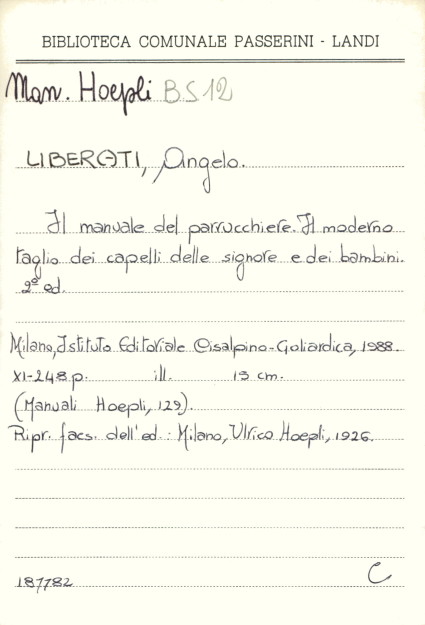 BIBLIOTECA COMUNALE PASSERINI - LANDI
Man. Hoepli B.S 12
LIBERATI, Angelo.
Il manuale del parrucchiere. Il moderno
taglio dei capelli delle signore e dei bambini.
2ª ed.
Milano, Istituto Editoriale Cisalpino-Goliardica, 1988.
XI-248 p. ill. 15 cm.
(Manuali Hoepli, 129).
Ripr. facs. dell'ed.: Milano, Ulrico Hoepli, 1926.
187782 C